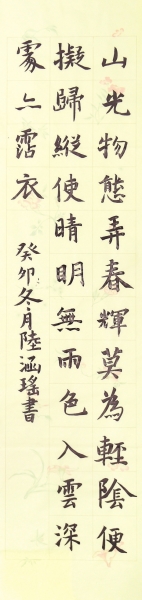 山光物態弄春輝莫為輕陰便
擬歸縱使晴明無雨色入雲深
處亦霑衣
癸卯冬月陸涵瑤書